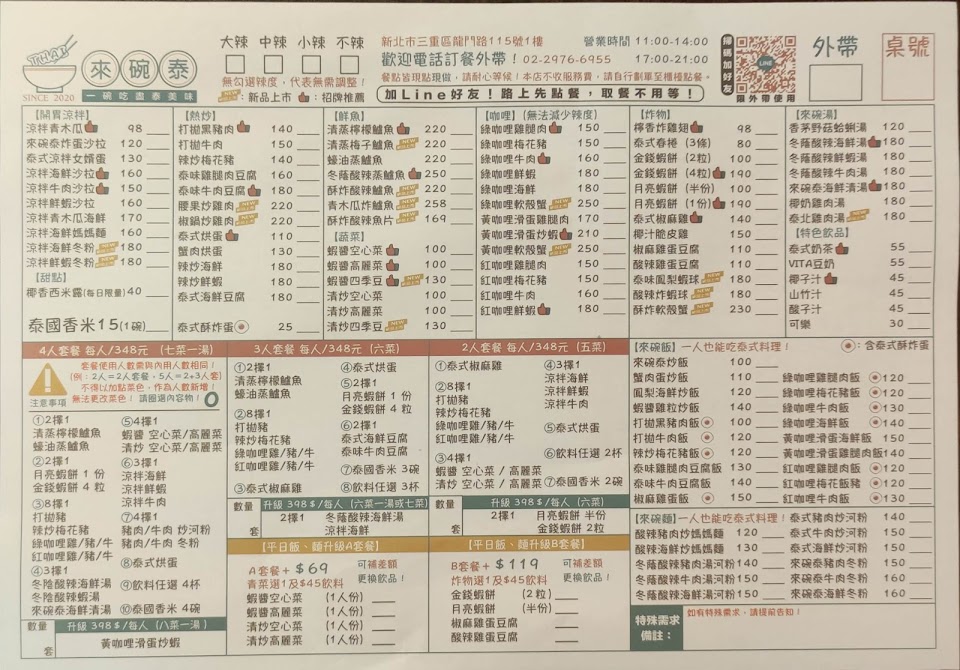 THAI
來碗泰
SINCE 2020
一碗吃盡泰美味
大辣 中辣 小辣 不辣
無勾選辣度，代表無需調整！
：新品上市 ：招牌推薦
新北市三重區龍門路115號1樓
營業時間 11:00-14:00
歡迎電話訂餐外帶！02-2976-6955
17:00-21:00
餐點皆現點現做，請耐心等候！本店不收服務費，請自行劃單至櫃檯點餐。
加Line好友！路上先點餐，取餐不用等！
掃碼加好友
LINE
限外帶使用
外帶
桌號
【開胃涼拌】
涼拌青木瓜 98
來碗泰炸蛋沙拉 120
泰式涼拌女婿蛋 130
涼拌海鮮沙拉 160
涼拌牛肉沙拉 150
涼拌鮮蝦沙拉 160
涼拌青木瓜海鮮 170
涼拌海鮮媽媽麵 160
涼拌海鮮冬粉 NEW 180
涼拌鮮蝦冬粉 NEW 180
【甜點】
椰香西米露(每日限量) 40
泰國香米15(1碗)
【熱炒】
打拋黑豬肉 140
打拋牛肉 150
辣炒梅花豬 140
泰味雞腿肉豆腐 160
泰味牛肉豆腐 180
腰果炸雞肉 NEW 220
椒鍋炒雞肉 NEW 220
泰式烘蛋 110
蟹肉烘蛋 130
辣炒海鮮 180
辣炒鮮蝦 180
泰式海鮮豆腐 180
泰式酥炸蛋 25
【鮮魚】
清蒸檸檬鱸魚 220
清蒸梅子鱸魚 NEW 220
蠔油蒸鱸魚 220
冬蔭酸辣蒸鱸魚 250
酥炸酸辣鱸魚 NEW 220
青木瓜炸鱸魚 NEW 258
酥炸酸辣魚片 NEW 169
【蔬菜】
蝦醬空心菜 100
蝦醬高麗菜 100
蝦醬四季豆 NEW 130
清炒空心菜 100
清炒高麗菜 100
清炒四季豆 NEW 130
【咖哩】(無法減少辣度)
綠咖哩雞腿肉 150
綠咖哩梅花豬 150
綠咖哩牛肉 160
綠咖哩鮮蝦 180
綠咖哩海鮮 180
綠咖哩軟殼蟹 NEW 250
黃咖哩滑蛋雞腿肉 170
黃咖哩滑蛋炒蝦 210
黃咖哩軟殼蟹 NEW 250
紅咖哩雞腿肉 150
紅咖哩梅花豬 150
紅咖哩牛肉 160
紅咖哩鮮蝦 180
【炸物】
檸香炸雞翅 98
泰式春捲 (3條) 80
金錢蝦餅 (2粒) 100
金錢蝦餅 (4粒) 190
月亮蝦餅 (半份) 100
月亮蝦餅 (1份) 190
泰式椒麻雞 140
椰汁脆皮雞 150
椒麻雞蛋豆腐 110
酸辣雞蛋豆腐 110
泰味鳳梨蝦球 NEW 180
酸辣炸蝦球 NEW 180
酥炸軟殼蟹 NEW 230
【來碗湯】
香茅野菇蛤蜊湯 120
冬蔭酸辣海鮮湯 180
冬蔭酸辣鮮蝦湯 180
冬蔭酸辣牛肉湯 180
來碗泰海鮮清湯 180
椰奶雞肉湯 180
泰北雞肉湯 NEW 180
【特色飲品】
泰式奶茶 55
VITA豆奶 55
椰子汁 45
山竹汁 45
酸子汁 45
可樂 30
4人套餐 每人/348元 (七菜一湯)
套餐使用人數需與內用人數相同！
(例：2人=2人套餐，5人=2+3人套)
不得以加點菜色，作為人數新增！
無法更改菜色！請圈選內容物！
注意事項
①2擇1
清蒸檸檬鱸魚
蠔油蒸鱸魚
②2擇1
月亮蝦餅 1 份
金錢蝦餅 4 粒
③8擇1
打拋豬
辣炒梅花豬
綠咖哩雞/豬/牛
紅咖哩雞/豬/牛
④3擇1
冬陰酸辣海鮮湯
冬陰酸辣蝦湯
來碗泰海鮮清湯
⑤4擇1
蝦醬 空心菜/高麗菜
清炒 空心菜/高麗菜
⑥3擇1
涼拌海鮮
涼拌鮮蝦
涼拌牛肉
⑦4擇1
豬肉/牛肉 炒河粉
豬肉/牛肉 冬粉
⑧泰式烘蛋
⑨飲料任選 4杯
⑩泰國香米 4碗
數量 套
升級 398＄/每人 (八菜一湯)
黃咖哩滑蛋炒蝦
3人套餐 每人/348元 (六菜)
①2擇1
清蒸檸檬鱸魚
蠔油蒸鱸魚
②8擇1
打拋豬
辣炒梅花豬
綠咖哩雞/豬/牛
紅咖哩雞/豬/牛
③泰式椒麻雞
④泰式烘蛋
⑤2擇1
月亮蝦餅 1 份
金錢蝦餅 4 粒
⑥2擇1
泰式海鮮豆腐
泰式雞肉豆腐
⑦泰國香米 3碗
⑧飲料任選 3杯
數量 套
升級 398＄/每人 (六菜一湯或七菜)
2擇1 冬蔭酸辣海鮮湯
涼拌海鮮
【平日飯、麵升級A套餐】
A套餐+＄69
可補差額
更換飲品！
青菜選1及$45飲料
蝦醬空心菜 (1人份)
蝦醬高麗菜 (1人份)
清炒空心菜 (1人份)
清炒高麗菜 (1人份)
2人套餐 每人/348元 (五菜)
①泰式椒麻雞
②8擇1
打拋豬
辣炒梅花豬
綠咖哩雞/豬/牛
紅咖哩雞/豬/牛
③4擇1
蝦醬 空心菜 / 高麗菜
清炒 空心菜 / 高麗菜
④3擇1
涼拌海鮮
涼拌鮮蝦
涼拌牛肉
⑤泰式烘蛋
⑥飲料任選 2杯
⑦泰國香米 2碗
數量 套
升級 398＄/每人 (六菜)
2擇1 月亮蝦餅 半份
金錢蝦餅 2粒
【平日飯、麵升級B套餐】
B套餐+＄119
可補差額
更換飲品！
炸物選1及$45飲料
金錢蝦餅 (2粒)
月亮蝦餅 (半份)
椒麻雞蛋豆腐
酸辣雞蛋豆腐
【來碗飯】一人也能吃泰式料理！
：含泰式酥炸蛋
來碗泰炒飯 100
蟹肉蛋炒飯 110
鳳梨海鮮炒飯 150
蝦醬雞粒炒飯 140
打拋黑豬肉飯 100
打拋牛肉飯 120
辣炒梅花豬飯 120
泰味雞腿肉豆腐飯 130
泰味牛肉豆腐飯 150
椒麻雞蓋飯 150
綠咖哩雞腿肉飯 120
綠咖哩梅花豬飯 120
綠咖哩牛肉飯 130
綠咖哩海鮮飯 140
黃咖哩滑蛋海鮮飯 150
黃咖哩滑蛋雞腿肉飯 140
紅咖哩雞腿肉飯 120
紅咖哩梅花飯豬 120
紅咖哩牛肉飯 130
紅咖哩鮮蝦飯 130
【來碗麵】一人也能吃泰式料理！
酸辣豬肉炒媽媽麵 120
酸辣海鮮炒媽媽麵 130
冬蔭酸辣豬肉湯河粉 140
冬蔭酸辣牛肉湯河粉 150
冬蔭酸辣海鮮湯河粉 150
泰式豬肉炒河粉 140
泰式牛肉炒河粉 150
泰式海鮮炒河粉 150
來碗泰豬肉冬粉 150
來碗泰牛肉冬粉 160
來碗泰海鮮冬粉 160
特殊需求備註：
如有特殊需求，請提前告知！